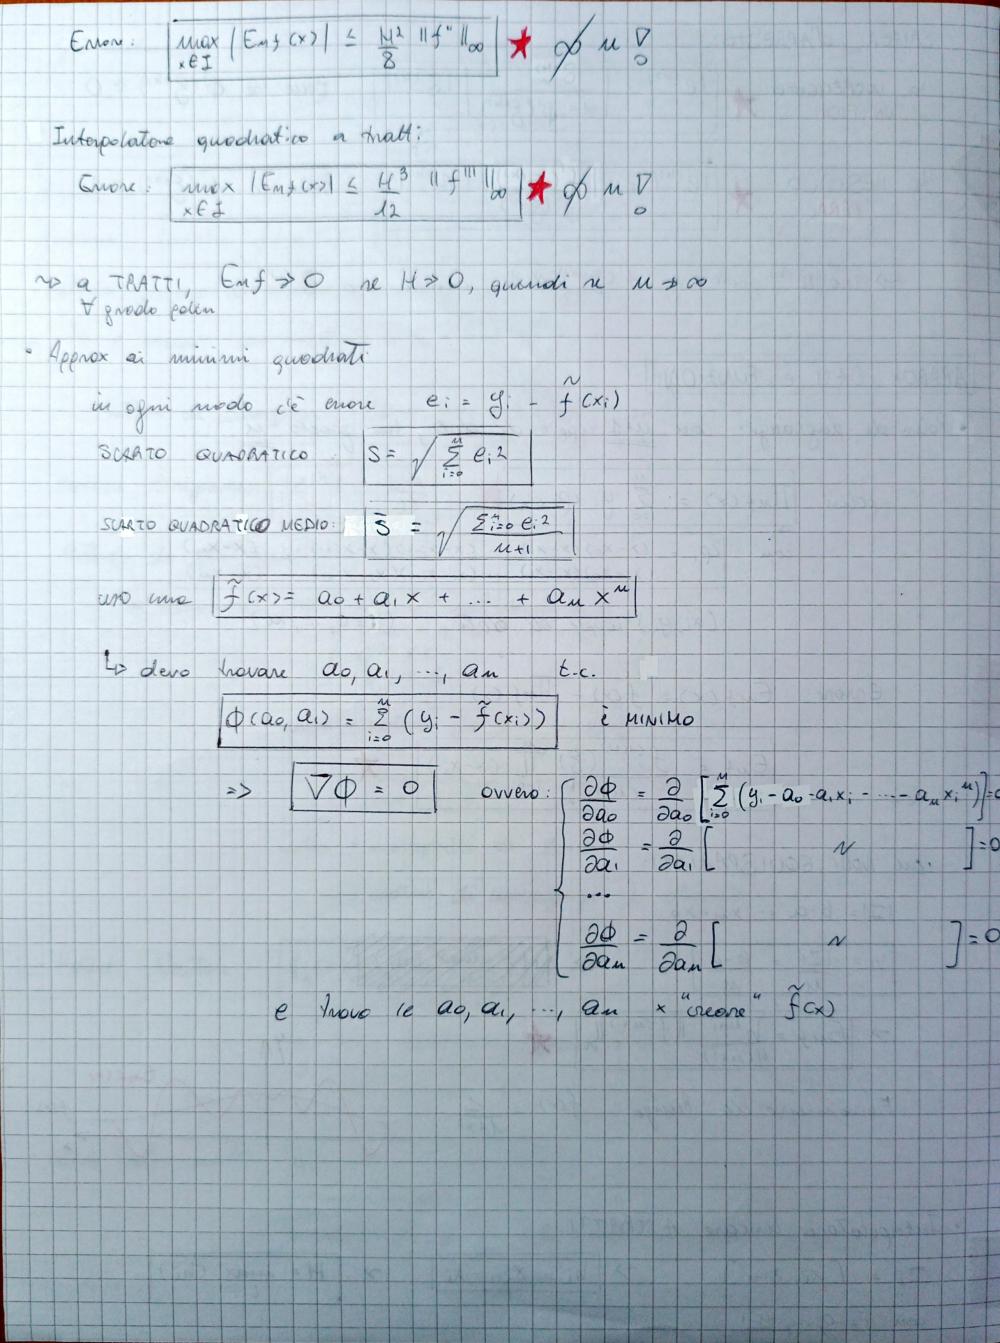 Errore: max x∈I |Enf(x)| ≤ H²/8 ||f''||∞ ★ ∅ n!
Interpolatore quadratico a tratti:
Errore: max x∈I |Enf(x)| ≤ H³/12 ||f'''||∞ ★ ∅ n!
~> a TRATTI, Enf → 0 se H → 0, quindi se n → ∞
∀ grado polin
• Approx ai minimi quadrati
in ogni modo c'è errore ei = yi - f̃(xi)
SCARTO QUADRATICO: S = √(Σ_{i=0}^{n} ei²)
SCARTO QUADRATICO MEDIO: S̄ = √(Σ_{i=0}^{n} ei² / n+1)
uso una f̃(x) = a0 + a1x + ... + anxⁿ
↳ devo trovare a0, a1, ..., an t.c.
ϕ(a0, a1) = Σ_{i=0}^{n} (yi - f̃(xi)) è MINIMO
=> ∇ϕ = 0 ovvero: { ∂ϕ/∂a0 = ∂/∂a0 [Σ_{i=0}^{n} (yi - a0 - a1xi - ... - anxiⁿ)] = 0
∂ϕ/∂a1 = ∂/∂a1 [ ~ ] = 0
...
∂ϕ/∂an = ∂/∂an [ ~ ] = 0
e trovo le a0, a1, ..., an x "creare" f̃(x)